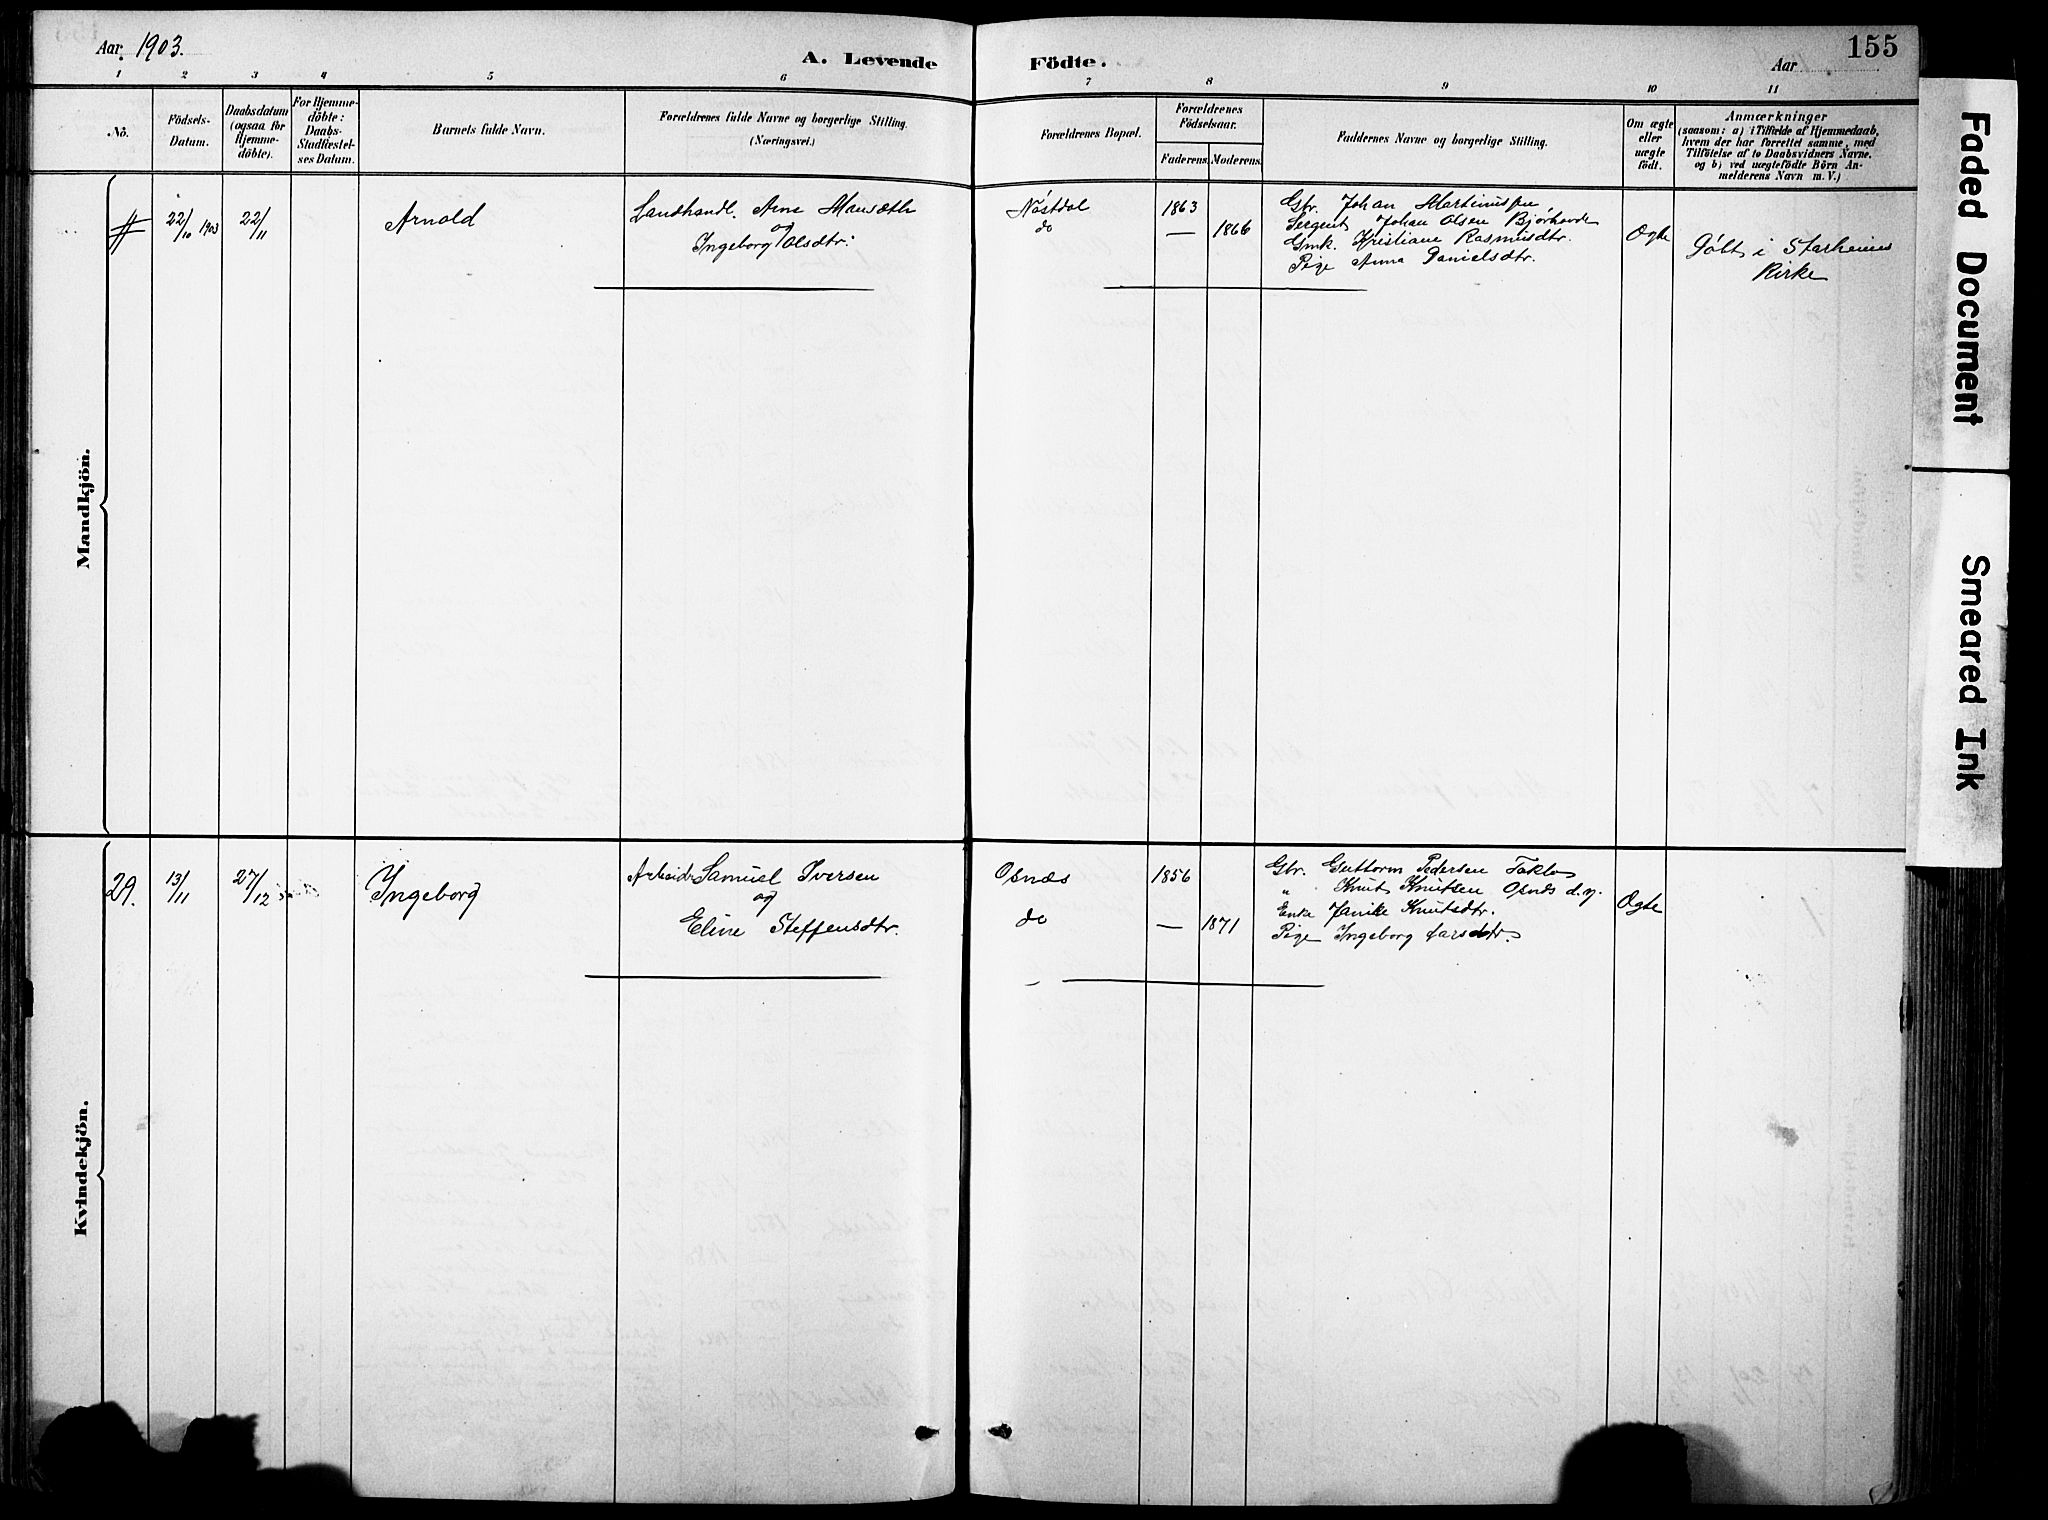 Aar 1903.
A. Levende Födte.
Aar
155
1 2 3 4 5 6 7 8 9 10 11
No.
Födsels-Datum.
Daabsdatum (ogsaa for Hjemme-döbte).
For Hjemme-döbte: Daabs-Stadfæstel-ses Datum.
Barnets fulde Navn.
Forældrenes fulde Navne og borgerlige Stilling.
(Næringsvei.)
Forældrenes Bopæl.
Forældrenes Födselsaar.
Faderens. Moderens.
Faddernes Navne og borgerlige Stilling.
Om ægte eller uægte födt.
Anmærkninger
(saasom: a) i Tilfælde af Hjemmedaab,
hvem der har forrettet samme, med
Tilföielse af to Daabsvidners Navne.
og b) ved uægtefödte Börn An-
melderens Navn m. V.)
Mandkjön.
22/10 1903
22/11
Arnold
Landhandl. Arne Mansæth
og
Ingeborg Olsdtr.
Nøstdal
do
1863
— 1866
Gbr. Johan Martinussen,
Sergent Johan Olsen Bjørhovde
Gmk. Kristiane Rasmusdtr.
Pige Anna Danielsdtr.
Ægte
Døbt i Starheims
Kirke
Kvindekjön.
29.
13/11
27/12
Ingeborg
Arbeider Samuel Iversen
og
Eline Steffensdtr.
Osnæs
do
1856
— 1871
Gbr. Guttorm Pedersen Taklo
" Knut Knutsen Osnæs d.y.
Enke Janike Knutsdtr.
Pige Ingeborg Larsdtr.
Ægte
Faded Document
Smeared Ink